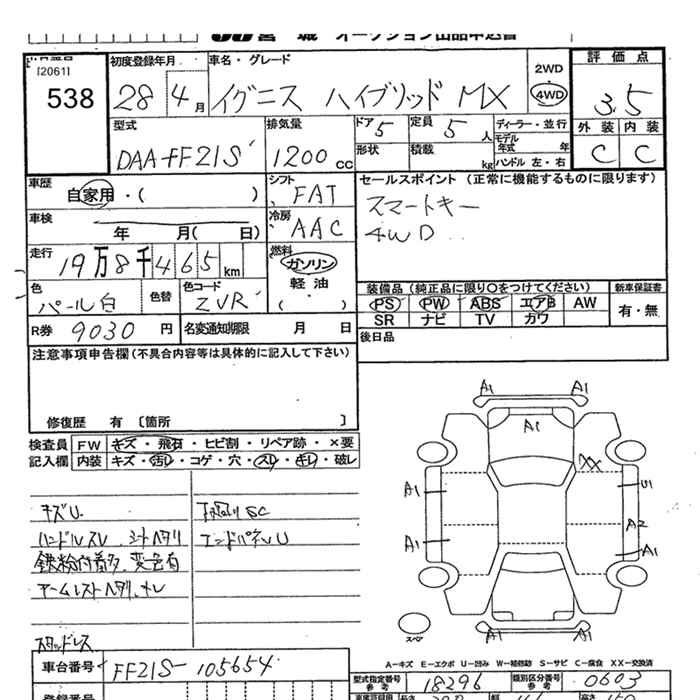 538
初度登録年月
28 4月
車名・グレード
イグニス ハイブリッド MX
2WD
4WD
評価点
3.5
外装 内装
C C
型式
DAA-FF21S
排気量
1200cc
ドア 5
定員 5人
形状
積載 kg
ディーラー・並行
モデル年式 年
ハンドル 左・右
車歴
自家用・( )
シフト
FAT
セールスポイント (正常に機能するものに限ります)
スマートキー
4WD
車検
年 月( 日)
冷房
AAC
走行
19万8千465km
燃料
ガソリン
軽油
( )
色
パール白
色替
色コード
ZVR
装備品(純正品に限り○をつけてください)
PS PW ABS エアB AW
SR ナビ TV カワ
新車保証書
有・無
R券 9030円
名変通知期限 月 日
後日品
注意事項申告欄(不具合内容等は具体的に記入して下さい)
修復歴 有〔箇所 〕
検査員記入欄
FW キズ・飛石・ヒビ割・リペア跡・×要
内装 キズ・汚レ・コゲ・穴・スレ・キレ・破レ
キズU
下廻りSC
ハンドルスレ シートヘタリ
エンドパネルU
鉄粉付着多、変色有
アームレストヘタリ、キレ
スタッドレス
A1 A1
A1
XX
A1 U1
A2
A1 A1
スペア
W A1
A-キズ E-エクボ U-凹み W-補修跡 S-サビ C-腐食 XX-交換済
車台番号 FF21S-105654
型式指定番号
参考
18296
類別区分番号
参考
0603